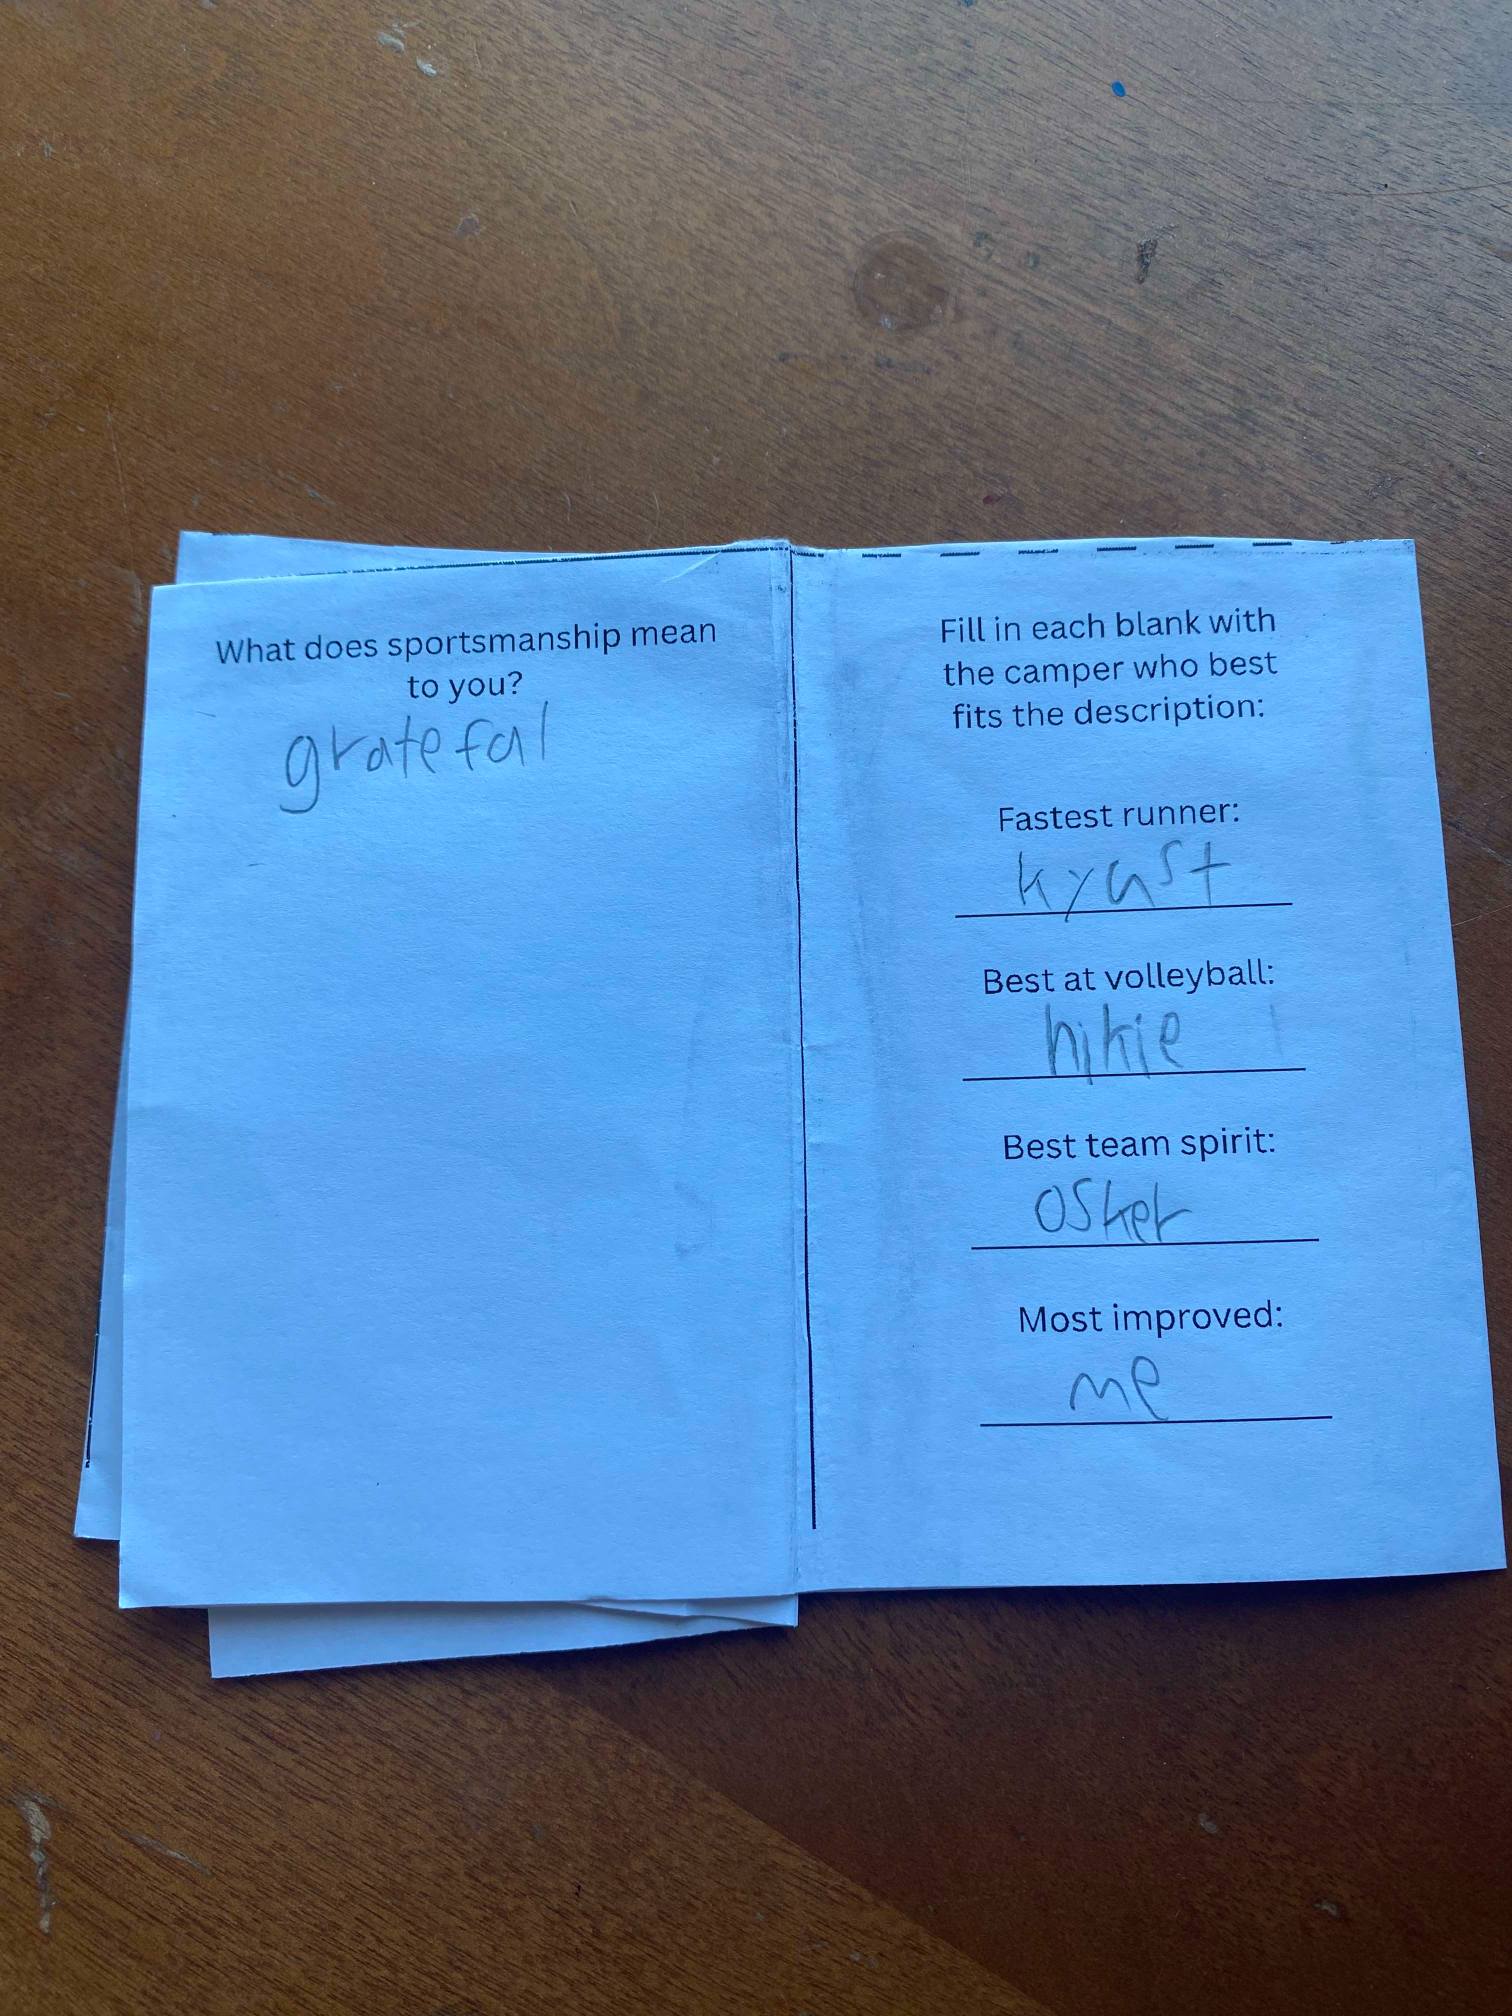 What does sportsmanship mean
to you?
grateful
Fill in each blank with
the camper who best
fits the description:
Fastest runner:
kyust
Best at volleyball:
hikie
Best team spirit:
osker
Most improved:
me